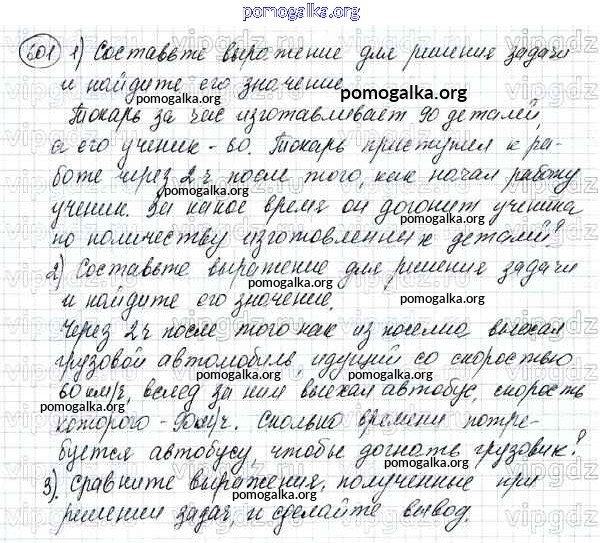 pomogalka.org
601 1) Составьте выражение для решения задачи
и найдите его значение.
Токарь за час изготавливает 90 деталей,
а его ученик - 60. Токарь приступил к ра-
боте через 2 ч после того, как начал работу
ученик. За какое время он догонит ученика
по количеству изготовленных деталей?
2) Составьте выражение для решения задачи
и найдите его значение.
Через 2 ч после того как из поселка выехал
грузовой автомобиль, идущий со скоростью
60 км/ч, вслед за ним выехал автобус, скорость
которого - 90 км/ч. Сколько времени потре-
буется автобусу, чтобы догнать грузовик?
3). Сравните выражения, полученные при
решении задач, и сделайте вывод.